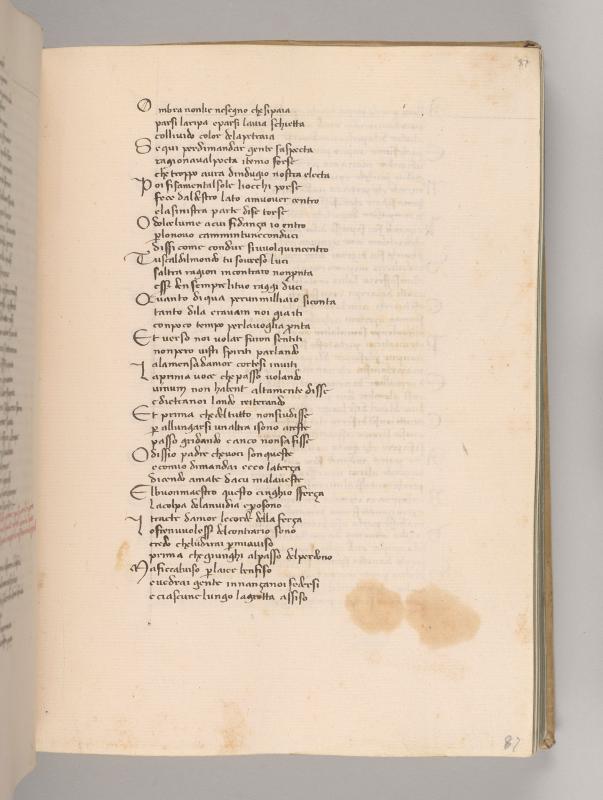 87
Ombra nonlie nesegno chesipaia
parsi laripa eparsi lavia schietta
collivido color delapetraia
Se qui perdimandar gente saspecta
ragionaval poeta itemo forse
chetroppo avra dindugio nostra electa
Poi fisamental sole liocchi porse
fece daldestro lato amuover centro
elasinistra parte dise torse
O dolcelume acui fidança io entro
plonovo cammin tuneconduci
dissi come condur sivuolquincentro
Tu scaldilmondo tu sovresso luci
saltra ragion incontrario nonpnta
esser den sempre lituo raggi duci
Quanto diqua perunmilliaio siconta
tanto dila eravam noi gia iti
conpoco tempo perlavoglia pnta
Et verso noi volar furon sentiti
nonpero visti spiriti parlando
alamensa damor cortesi inviti
La prima voce chepasso volando
vinum non habent altamente disse
edietranoi lando reiterando
Et prima chedeltutto nonsiudisse
p allungarsi unaltra isono areste
passo gridando e anco nonsafisse
O dissio padre chevoci sonqueste
ecomio dimandai ecco laterça
dicendo amate dacu malaveste
Elbuonmaestro questo cinghio sferça
lacolpa delanvidia eposono
tracte damor lecorde della ferça
Lofrenvuolesser delcontrario sono
credo cheludirai pmioaviso
prima chegiunghi alpasso delperdono
Maficcalviso plaire benfiso
evedrai gente innançanoi sedersi
e ciascune lungo lagrotta assiso
87